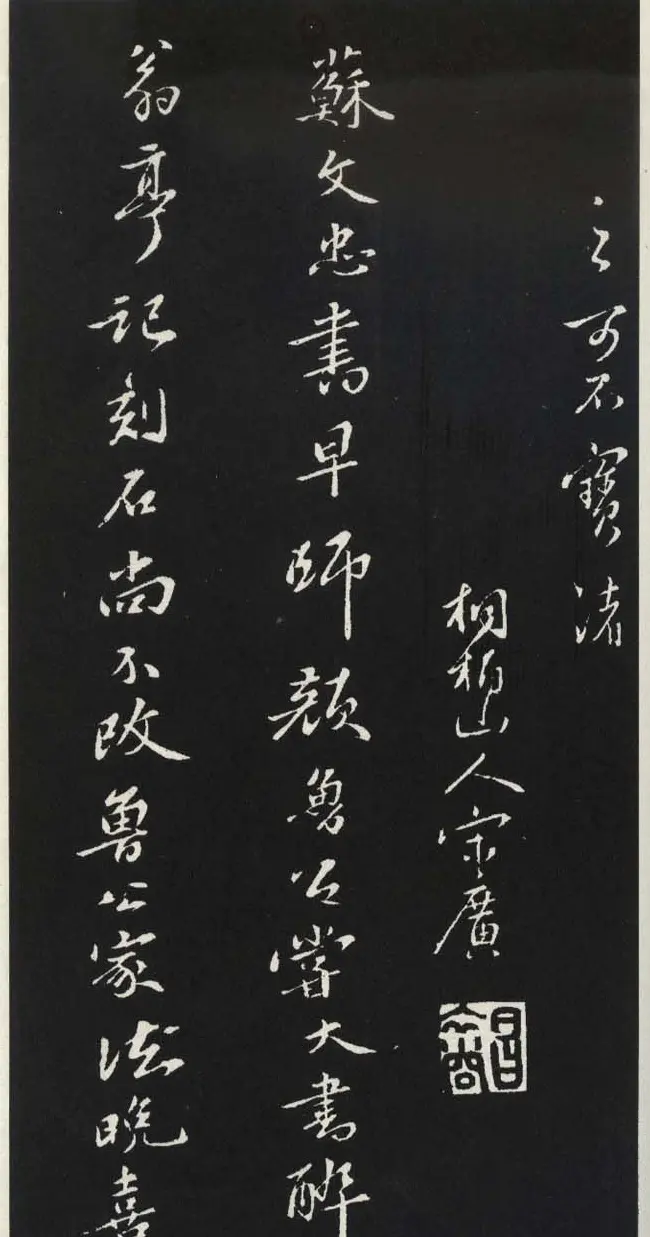 之可不寶諸
桐柏山人宋廣
昌裔
蘇文忠書早師顏魯公嘗大書醉
翁亭記刻石尚不改魯公家法晚喜